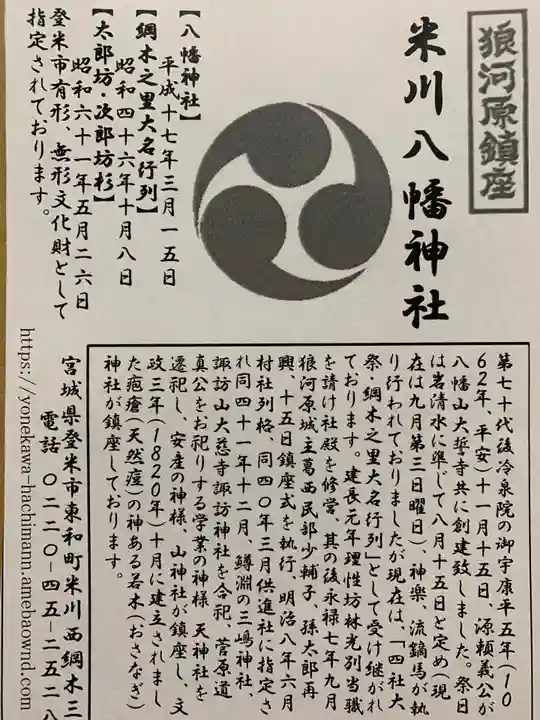 狼河原鎮座
米川八幡神社
【八幡神社】
平成十七年三月一五日
【綱木之里大名行列】
昭和四十六年十月八日
【太郎坊・次郎坊杉】
昭和六十一年五月二六日
登米市有形、無形文化財として
指定されております。
第七十代後冷泉院の御宇康平五年(10
62年、平安)十一月十五日、源頼義公が
八幡山大誓寺共に創建致しました。祭日
は岩清水に準じて八月十五日と定め(現
在は九月第三日曜日)、神楽、流鏑馬が執
り行われておりましたが現在は、「四社大
祭・綱木之里大名行列」として受け継がれ
ております。建長元年理性坊林光別当職
を請け社殿を修営、其の後永禄七年九月
狼河原城主葛西民部少輔子、孫太郎再
興、十五日鎮座式を執行、明治八年六月
村社列格、同四〇年三月供進社に指定さ
れ同四十一年十二月、鱒淵の三嶋神社、
諏訪山大慈寺諏訪神社を合祀、菅原道
真公をお祀りする学業の神様、天神社を
遷祀し、安産の神様、山神社が鎮座し、文
政三年(1820年)十月に建立されまし
た疱瘡(天然痘)の神ある若木(おさなぎ)
神社が鎮座しております。
宮城県登米市東和町米川西綱木三
電話 〇二二〇-四五-二五二八
https://yonekawa-hachimann.amebaownd.com